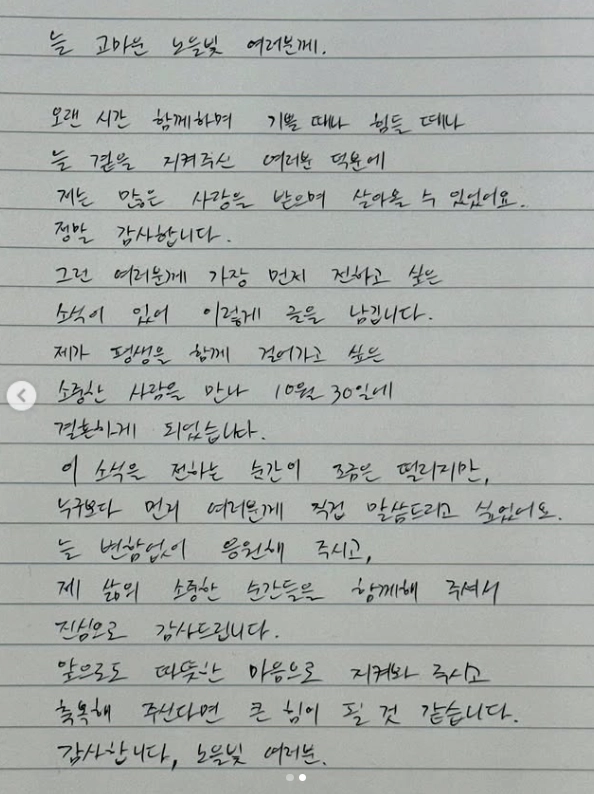 늘 고마운 노을빛 여러분께.
오랜 시간 함께하며 기쁠 때나 힘들 때나
늘 곁을 지켜주신 여러분 덕분에
저는 많은 사랑을 받으며 살아올 수 있었어요.
정말 감사합니다.
그런 여러분께 가장 먼저 전하고 싶은
소식이 있어 이렇게 글을 남깁니다.
제가 평생을 함께 걸어가고 싶은
소중한 사람을 만나 10월 30일에
결혼하게 되었습니다.
이 소식을 전하는 순간이 조금은 떨리지만,
누구보다 먼저 여러분께 직접 말씀드리고 싶었어요.
늘 변함없이 응원해 주시고,
제 삶의 소중한 순간들을 함께해 주셔서
진심으로 감사드립니다.
앞으로도 따뜻한 마음으로 지켜봐 주시고
축복해 주신다면 큰 힘이 될 것 같습니다.
감사합니다, 노을빛 여러분.